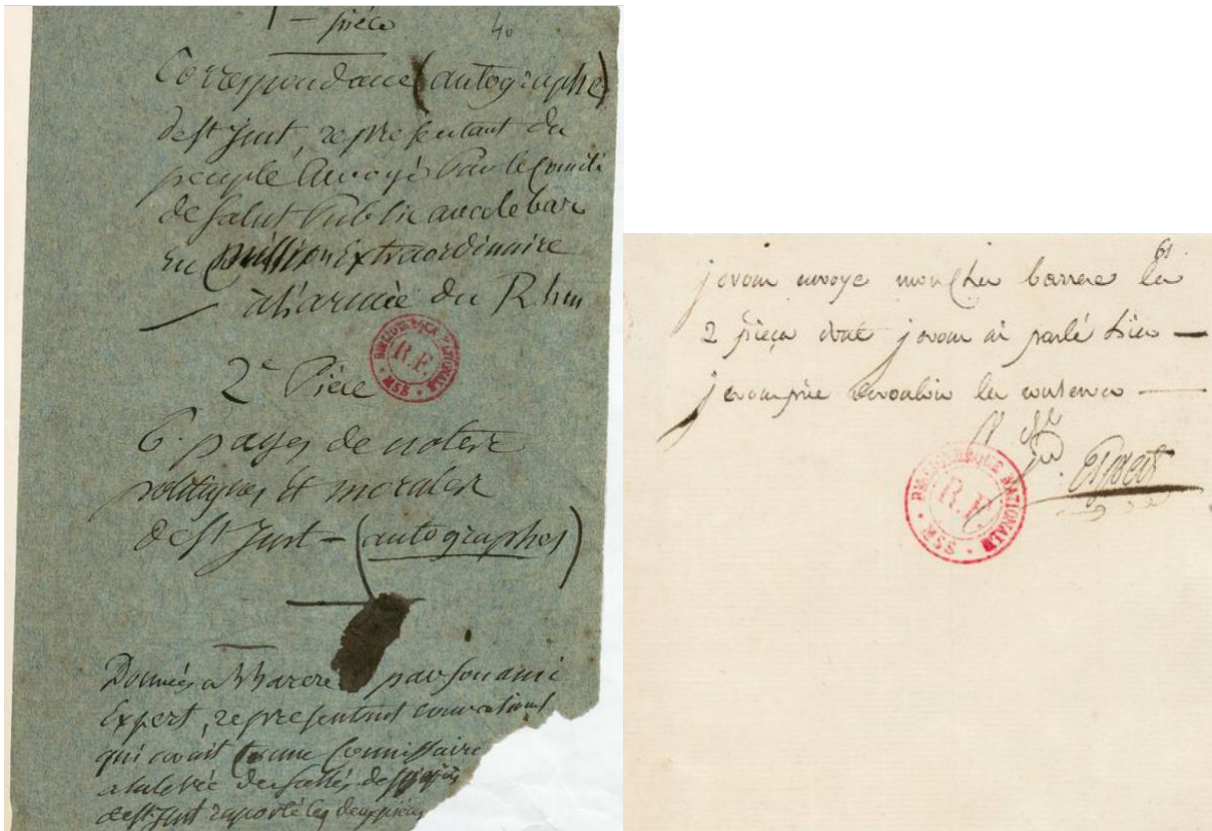 1 – pièce
40
Correspondance (autographe)
de st Just, représentant du
peuple Envoyé Par le Comité
de Salut Public avec le bas
en Mission Extraordinaire
à l'armée du Rhin
BIBLIOTHEQUE NATIONALE
R.F.
MSS
2e Pièce
6. pages de notes
politiques et morales
de st Just – (autographes)
Données a Barere par son ami
Expert, représentant
qui avait comme Commissaire
a la levée des scellés
de st Just raporté les deux pièces
61
je vous envoye mon cher barrere les
2 pieces dont je vous ai parlé hier —
je vous prie de vouloir les conserver —
Expert
BIBLIOTHEQUE NATIONALE
R.F.
MSS